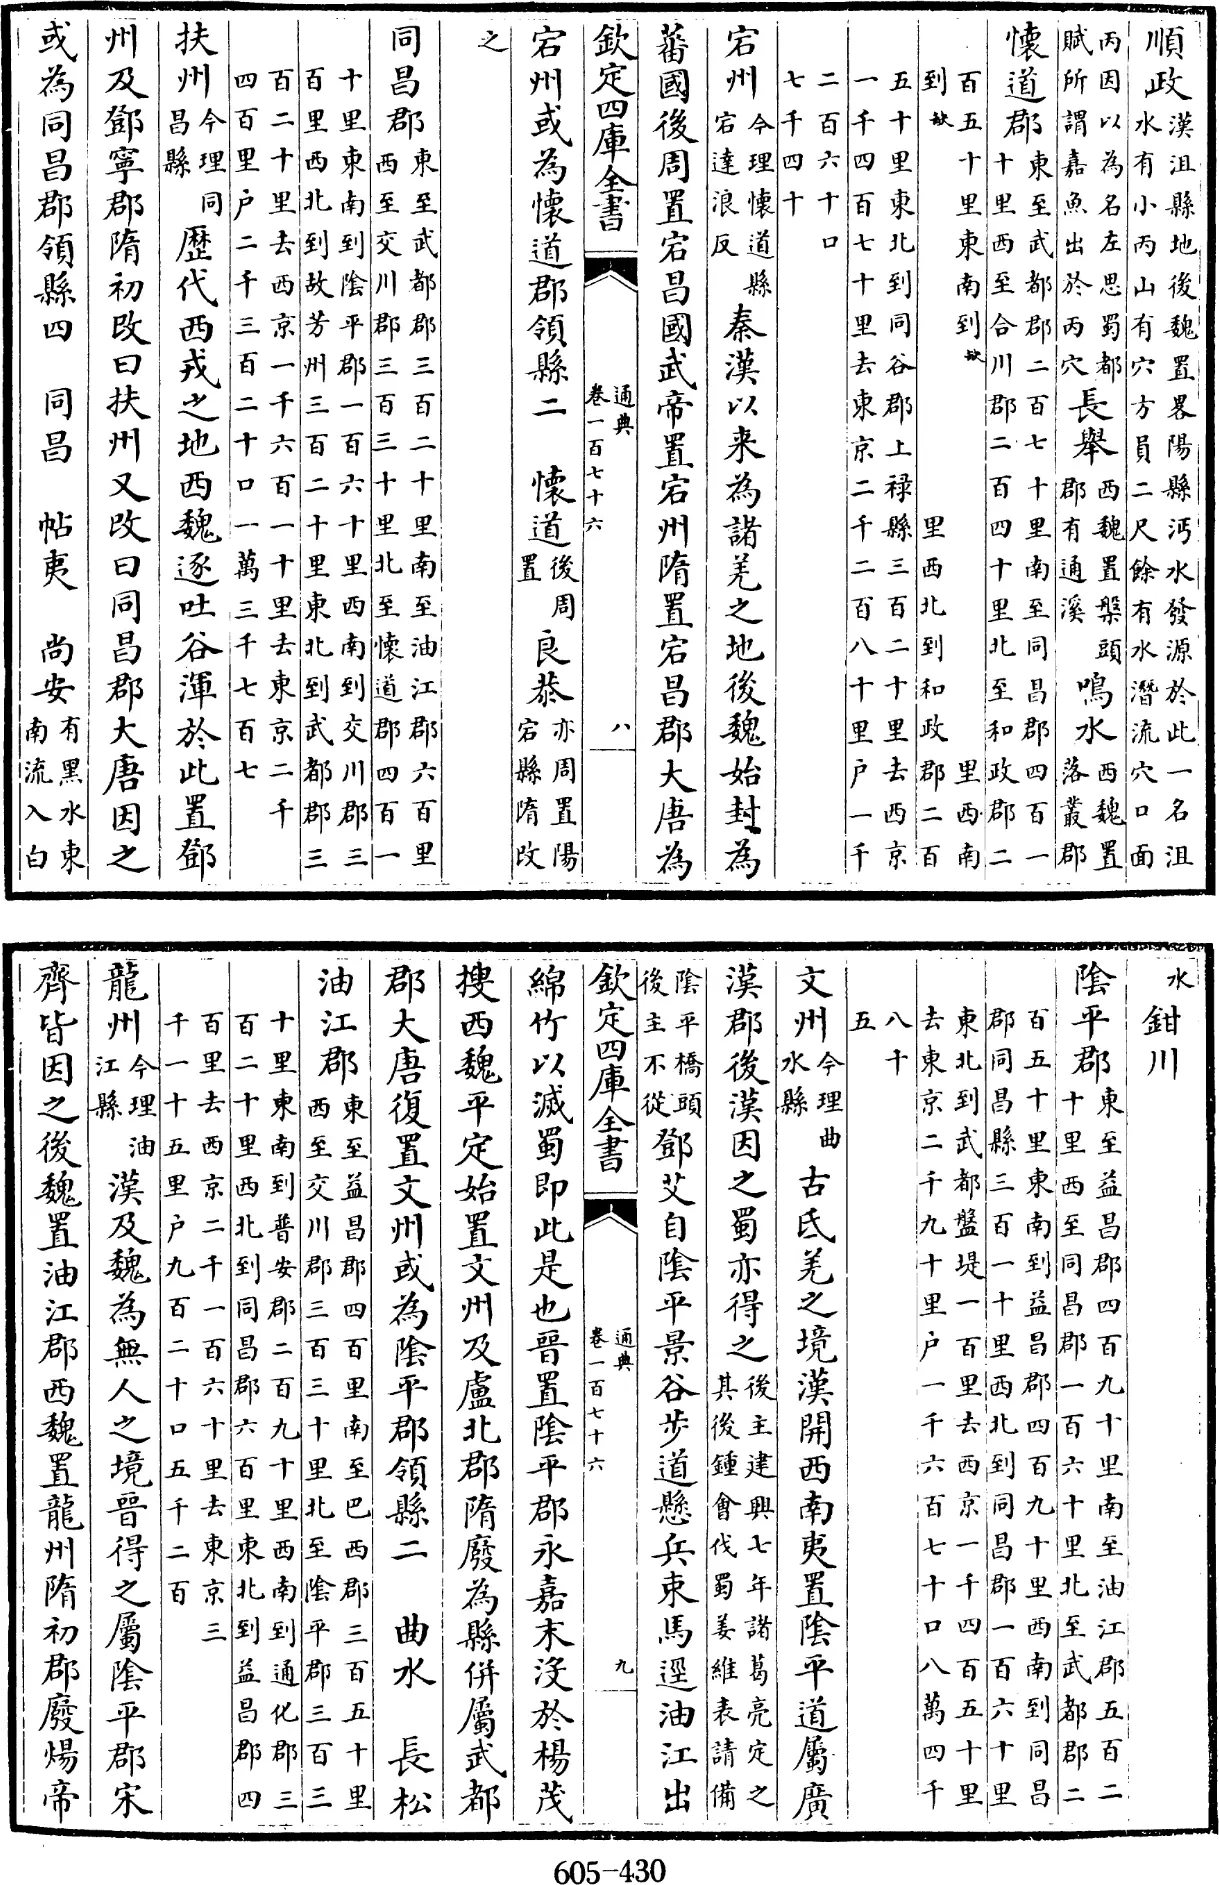 順政漢沮縣地後魏置畧陽縣沔水發源於此一名沮水有小丙山有穴方員二尺餘有水潛流穴口面
丙因以為名左思蜀都賦所謂嘉魚出於丙穴長舉西魏置槃頭郡有通溪鳴水西魏置落叢郡
懷道郡東至武都郡二百七十里南至同昌郡四百一十里西至合川郡二百四十里北至和政郡二
百五十里東南到缺 里西南到缺 里西北到和政郡二百
五十里東北到同谷郡上禄縣三百二十里去西京一千四百七十里去東京二千二百八十里户一千
二百六十口七千四十
宕州今理懷道縣宕達浪反秦漢以来為諸羌之地後魏始封為
蕃國後周置宕昌國武帝置宕州隋置宕昌郡大唐為
欽定四庫全書 通典卷一百七十六 八
宕州或為懷道郡領縣二 懷道後周置良恭亦周置陽宕縣隋改
之
同昌郡東至武都郡三百二十里南至油江郡六百里西至交川郡三百三十里北至懷道郡四百一
十里東南到陰平郡一百六十里西南到交川郡三百里西北到故芳州三百二十里東北到武都郡三
百二十里去西京一千六百一十里去東京二千四百里户二千三百二十口一萬三千七百七
扶州今理同昌縣歷代西戎之地西魏逐吐谷渾於此置鄧
州及鄧寧郡隋初改曰扶州又改曰同昌郡大唐因之
或為同昌郡領縣四 同昌 帖夷 尚安有黑水東南流入白
水 鉗川
陰平郡東至益昌郡四百九十里南至油江郡五百二十里西至同昌郡一百六十里北至武都郡二
百五十里東南到益昌郡四百九十里西南到同昌郡同昌縣三百一十里西北到同昌郡一百六十里
東北到武都盤堤一百里去西京一千四百五十里去東京二千九十里户一千六百七十口八萬四千
八十五
文州今理曲水縣古氐羌之境漢開西南夷置陰平道屬廣
漢郡後漢因之蜀亦得之後主建興七年諸葛亮定之其後鍾會伐蜀姜維表請備
陰平橋頭後主不從鄧艾自陰平景谷步道懸兵束馬逕油江出
欽定四庫全書 通典卷一百七十六 九
綿竹以滅蜀即此是也晉置陰平郡永嘉末沒於楊茂
搜西魏平定始置文州及盧北郡隋廢為縣併屬武都
郡大唐復置文州或為陰平郡領縣二 曲水 長松
油江郡東至益昌郡四百里南至巴西郡三百五十里西至交川郡三百三十里北至陰平郡三百三
十里東南到普安郡二百九十里西南到通化郡三百二十里西北到同昌郡六百里東北到益昌郡四
百里去西京二千一百六十里去東京三千一十五里户九百二十口五千二百
龍州今理油江縣漢及魏為無人之境晉得之屬陰平郡宋
齊皆因之後魏置油江郡西魏置龍州隋初郡廢煬帝
605-430